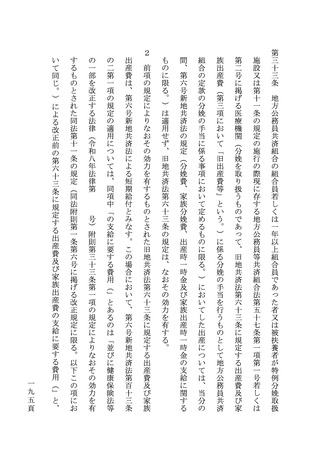 第三十三条　地方公務員共済組合の組合員若しくは一年以上組合員であった者又は被扶養者が特例分娩取扱
施設又は第十一条の規定の施行の際現に存する地方公務員等共済組合法第五十七条第一項第一号若しくは
第二号に掲げる医療機関（分娩を取り扱うものであって、旧地共済法第六十三条に規定する出産費及び家
族出産費（第三項において「旧出産費等」という。）に係る分娩の手当を行うものとして地方公務員共済
組合の定款の分娩の手当に係る事項において定めるものに限る。）においてした出産については、当分の
間、第六号新地共済法の規定（分娩費、家族分娩費、出産時一時金及び家族出産時一時金の支給に関する
ものに限る。）は適用せず、旧地共済法第六十三条の規定は、なおその効力を有する。
２　前項の規定によりなおその効力を有するものとされた旧地共済法第六十三条に規定する出産費及び家族
出産費は、第六号新地共済法による短期給付とみなす。この場合において、第六号新地共済法第百十三条
の二第一項の規定の適用については、同項中「の支給に要する費用（」とあるのは「並びに健康保険法等
の一部を改正する法律（令和八年法律第　　号）附則第三十三条第一項の規定によりなおその効力を有
するものとされた同法第十一条の規定（同法附則第一条第六号に掲げる改正規定に限る。以下この項にお
いて同じ。）による改正前の第六十三条に規定する出産費及び家族出産費の支給に要する費用（」と、
一九五頁